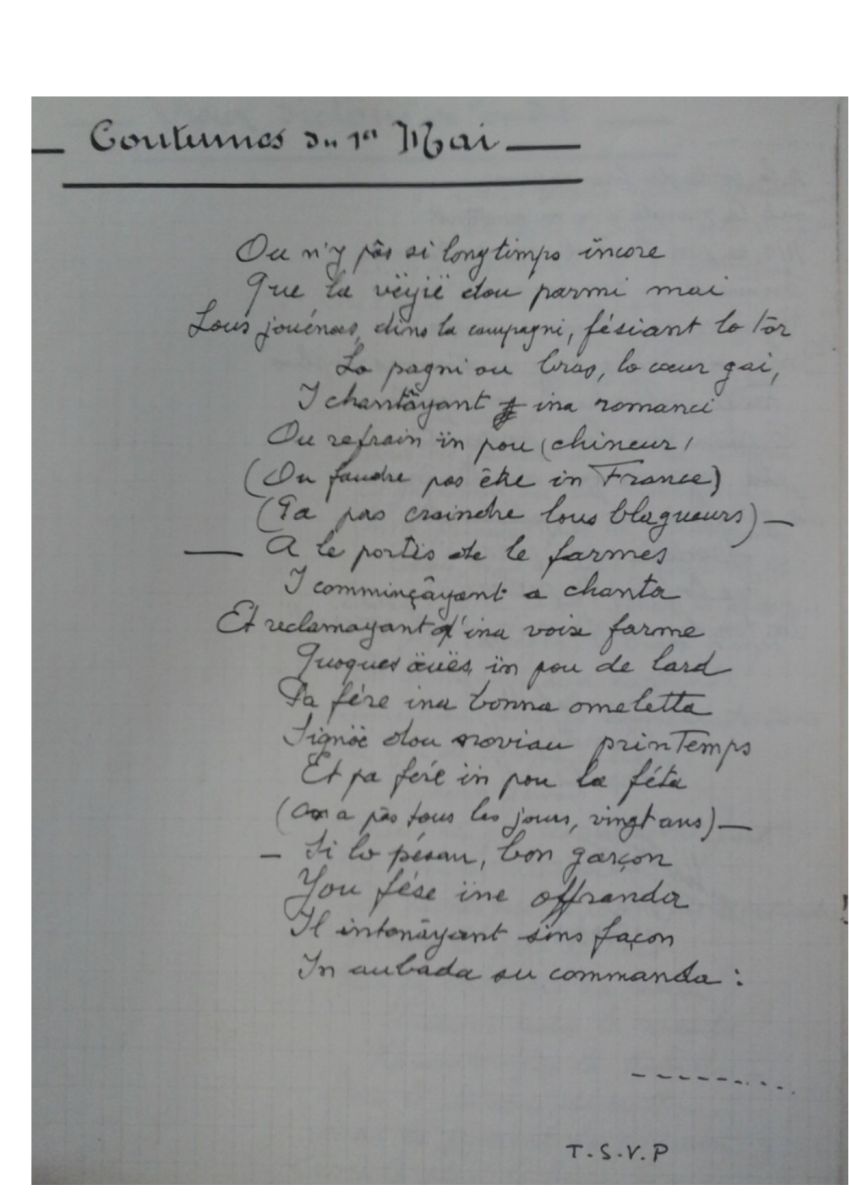 Coutumes du 1er Mai
Ou n'y pâs si longtimps incore
Que la vëyië dou parmi mai
Lous jouënes, dins la campagni, fésiant lo tör
Lo pagni ou bras, lo cœur gai,
I chantâyant ina romanci
Ou refrain ïn pou chineur
(Ou faudre pas être in France)
(Pa pas craindre lous blagueurs) —
— A le portës de le farmes
I comminçâyant a chanta
Et reclamayant d'ina voix farme
Quoques äuës, ïn pou de lard
Pa fére ina bonna omeletta
Signöe dou noviau printemps
Et pa féré in pou la féta
(On a pâs tous les jours, vingt ans) —
— Si lo pésan, bon garçon
You fése ïne offranda
Il intonâyant sins façon
In aubada su commanda :
T.S.V.P